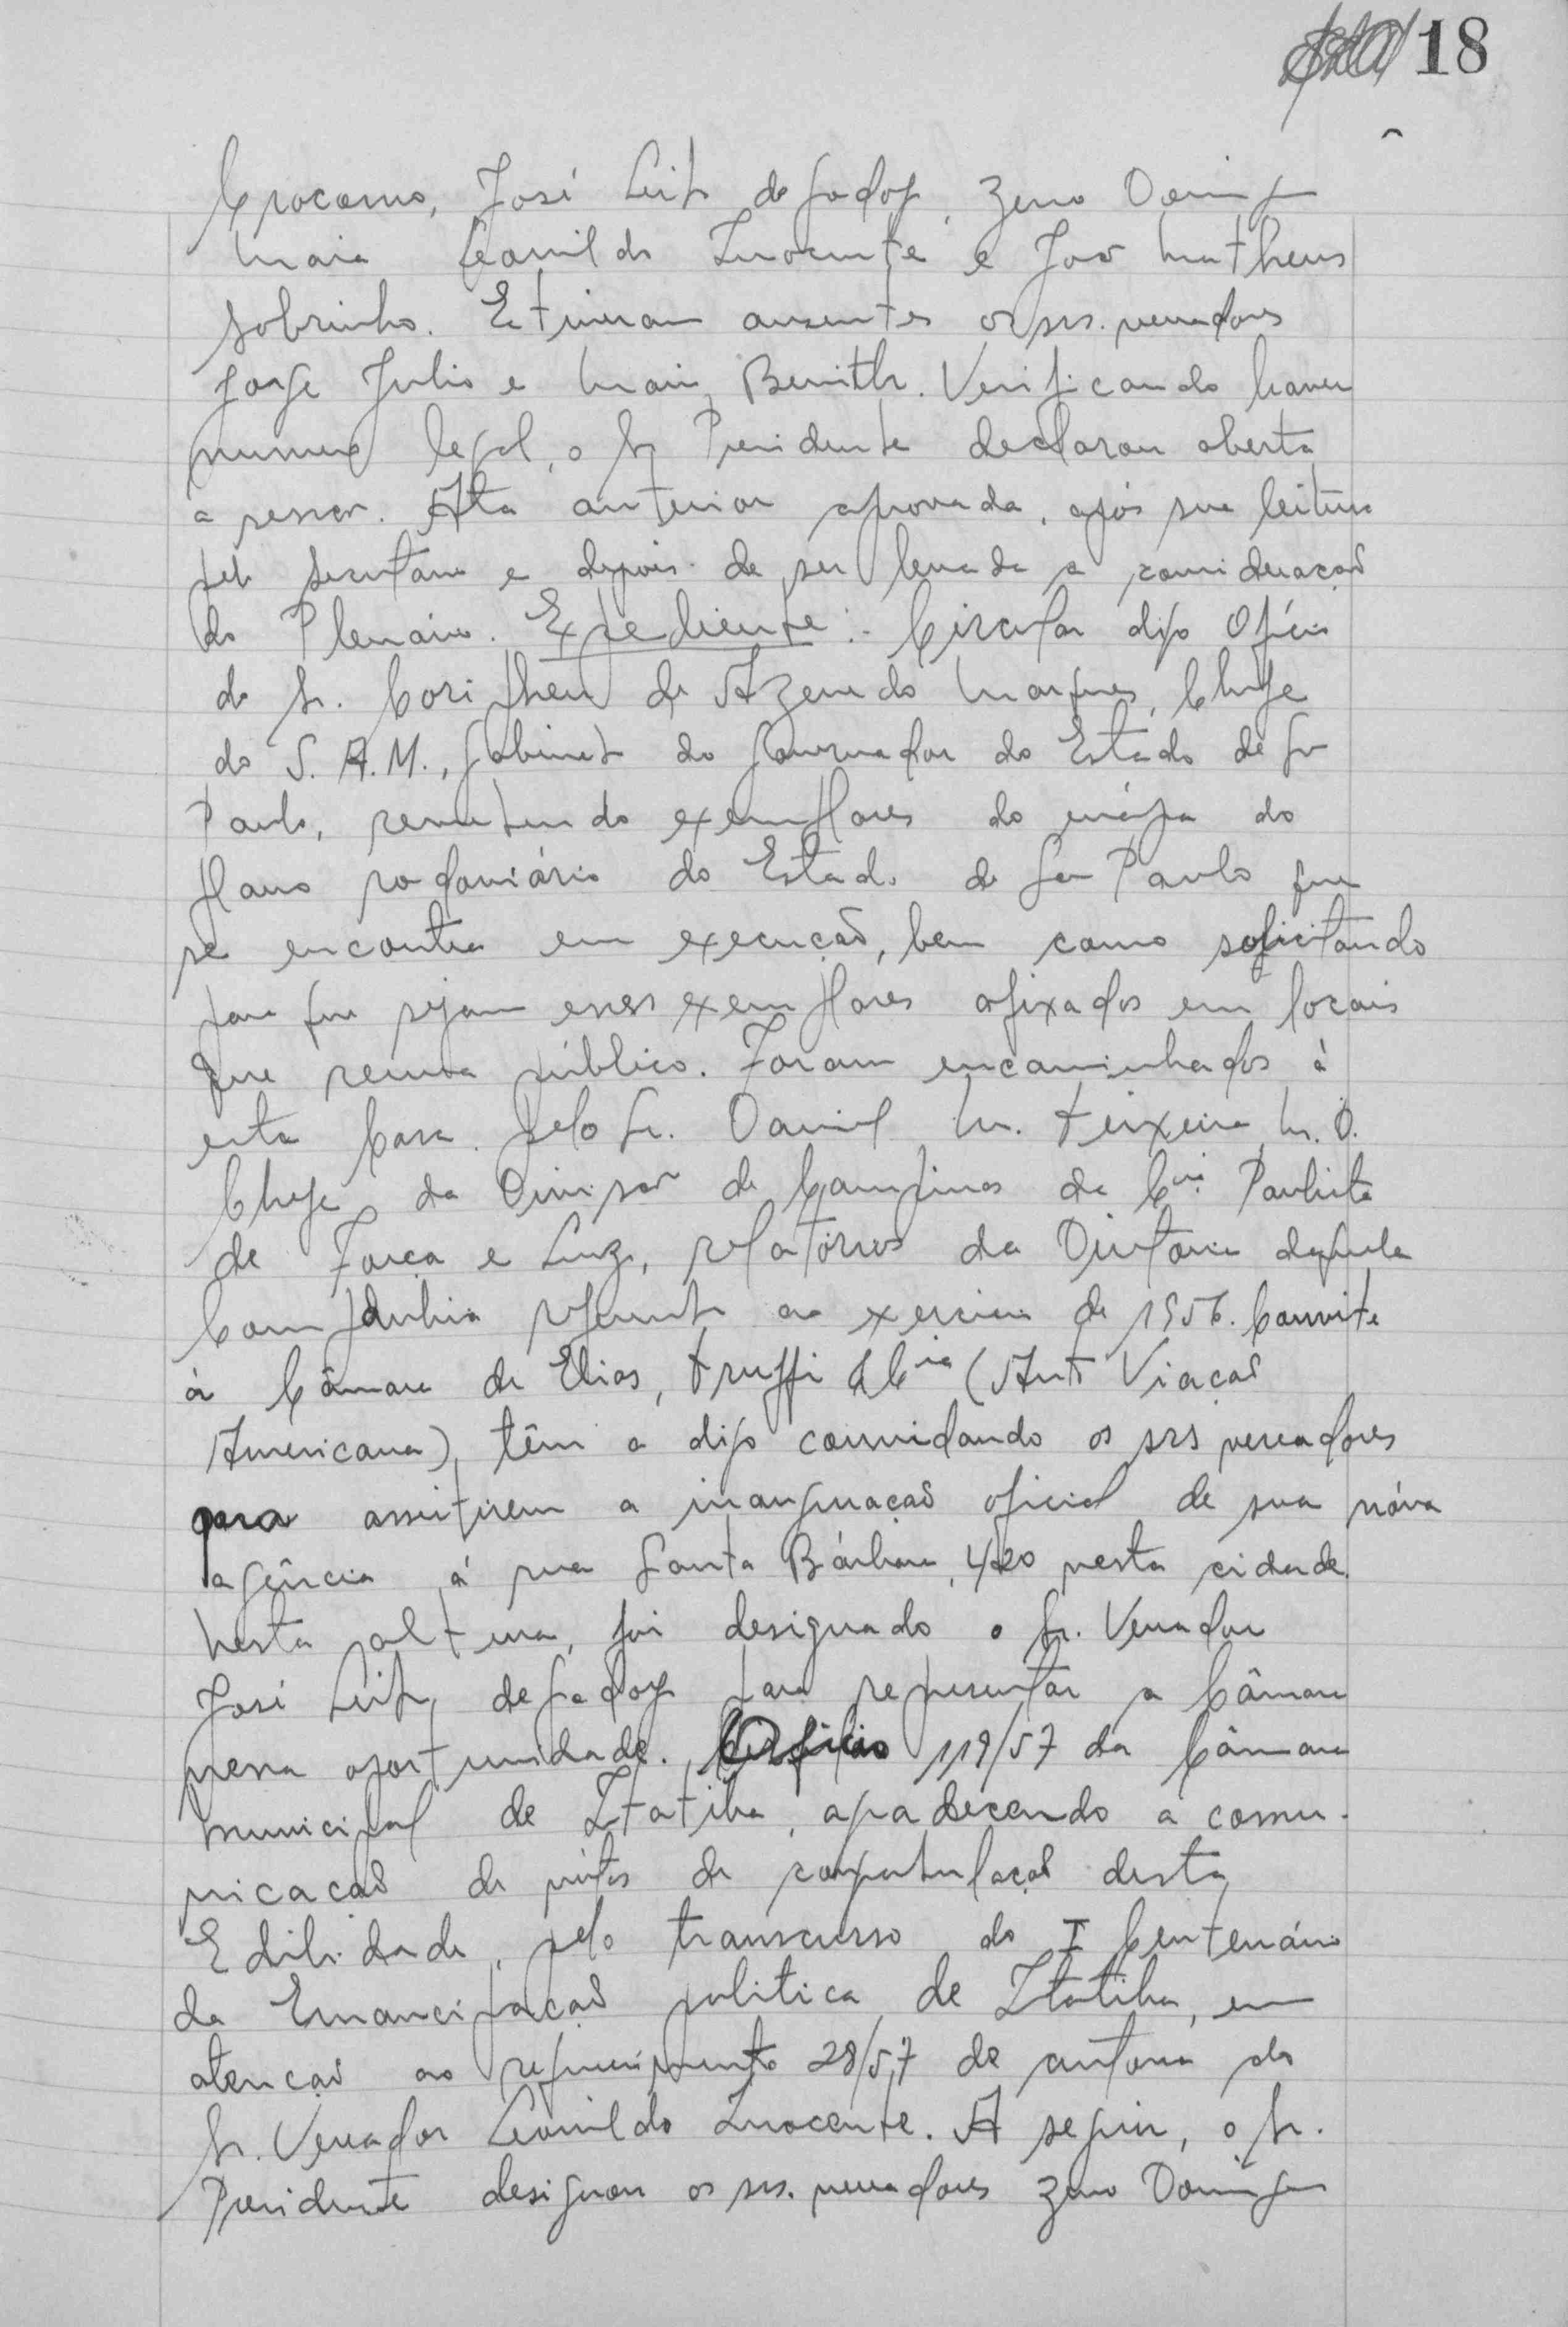 18
Crocomo, José Leite de Godoy, Zeno Domingues
Maia Leonildo Inocente e João Matheus
Sobrinho. Etiveram ausentes os srs. vereadores
Jorge Julio e Mario Benith. Verificando haver
numero legal, o Sr Presidente declarou aberta
a sessão. Ata anterior aprovada, após sua leitura
pelo secretario e depois de ser levada a consideração
do Plenário. Expediente:- Circular digo Ofício
do Sr. Coripheu de Azevedo Marques, Chefe
do S. A. M., Gabinete do Governador do Estado de São
Paulo, remetendo exemplares do mápa do
plano rodoviário do Estado de São Paulo que
se encontra em execução, bem como solicitando
para que sejam esses exemplares afixados em locais
que reuna público. Foram encaminhados á
esta Casa pelo Sr. Daniel M. Teixeira M. D.
Chefe da Divisão de Campinas da Cia Paulista
de Força e Luz, relatórios da Diretoria daquela
Companhia referente ao exercicio de 1956. Convite
á Câmara de Elias, Truffi & Cia (Auto Viação
Americana), têm a digo convidando os srs vereadores
para assistirem a inauguração oficial de sua nóva
agência á rua Santa Bárbara, 420 nesta cidade.
Nesta altura, foi designado o Sr. Vereador
José Leite de Godoy para representar a Câmara
nessa oportunidade. Oficio 119/57 da Câmara
Municipal de Itatiba, agradecendo a comu-
nicação de vótos de congratulação desta
Edilidade, pelo transcurso do I Centenário
da Emancipação politica de Itatiba, em
atenção ao requerimento 28/57 de autoria do
Sr. Vereador Leonildo Inocente. A seguir, o Sr.
Presidente designou os srs. vereadores Zeno Domingues